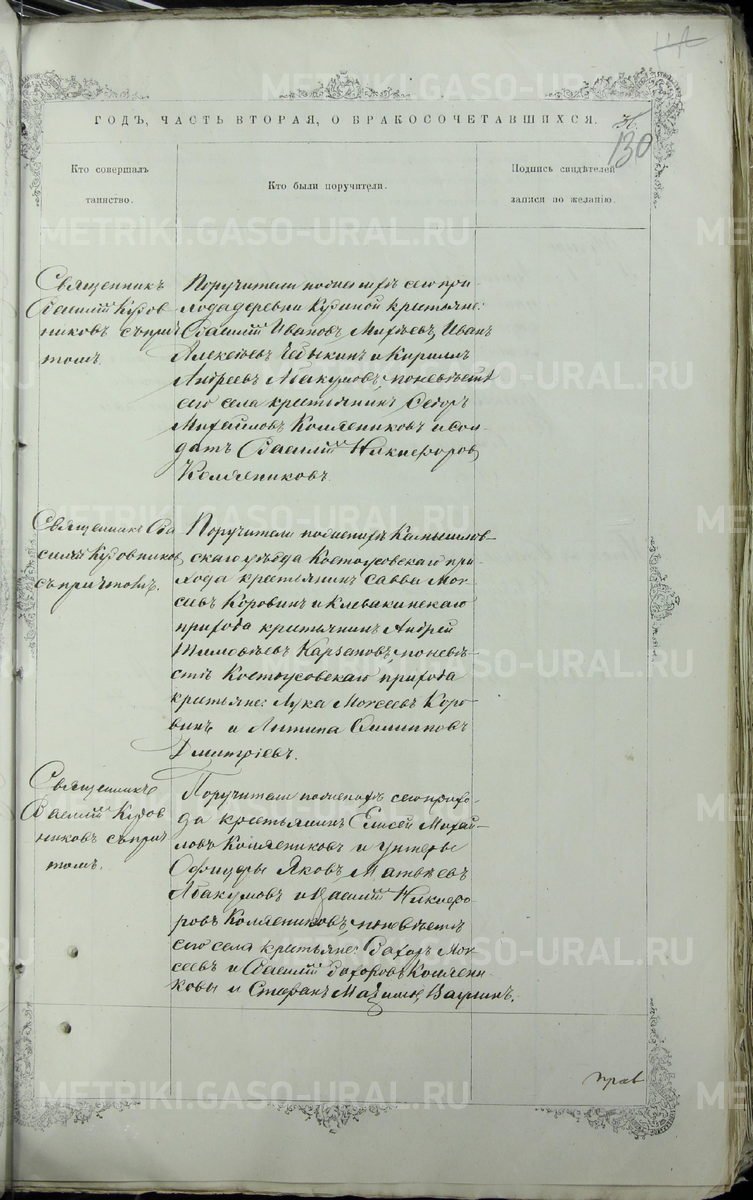 ГОДЪ, ЧАСТЬ ВТОРАЯ, О БРАКОСОЧЕТАВШИХСЯ.
130
Кто совершалъ
таинство.
Кто были поручители.
Подпись свидѣтелей
записи по желанію.
Священникъ
Василій Кудов
никовъ съ прич
томъ.
Поручители по женихѣ сего при-
хода деревни крестьяне:
Василій Ивановъ Михѣевъ, Иванъ
Алексѣевъ Чебыкинъ и Кириллъ
Андреевъ Абакумовъ, по невѣстѣ
сего села крестьянинъ Ѳедоръ
Михайловъ Комлениковъ и сол-
датъ Василій Никифоровъ
Комлениковъ.
Священникъ Ва
силій Кудовников
съ причтомъ.
Поручители по женихѣ Камышлов-
скаго уѣзда Костоусовскаго при-
хода крестьянинъ Савва Мои-
сеевъ Коровинъ и Клевакинскаго
прихода крестьянинъ Андрей
Тимофѣевъ по невѣ-
стѣ Костоусовскаго прихода
крестьяне: Лука Моисеевъ Коро-
винъ и Антипа Филиповъ
Дмитріевъ.
Священникъ
Василій Кудов
никовъ съ прич
томъ.
Поручители по женихѣ сего прихо-
да крестьянинъ Елисей Михай-
ловъ Комлениковъ и Унтеръ
Офицеры Яковъ Матвѣевъ
Абакумовъ и Василій Никифо-
ровъ Комлениковъ, по невѣстѣ
сего села крестьяне: Захаръ Мои-
сеевъ и Василій Захаровъ Комлени-
ковы и Стефанъ
METRIKI.GASO-URAL.RU